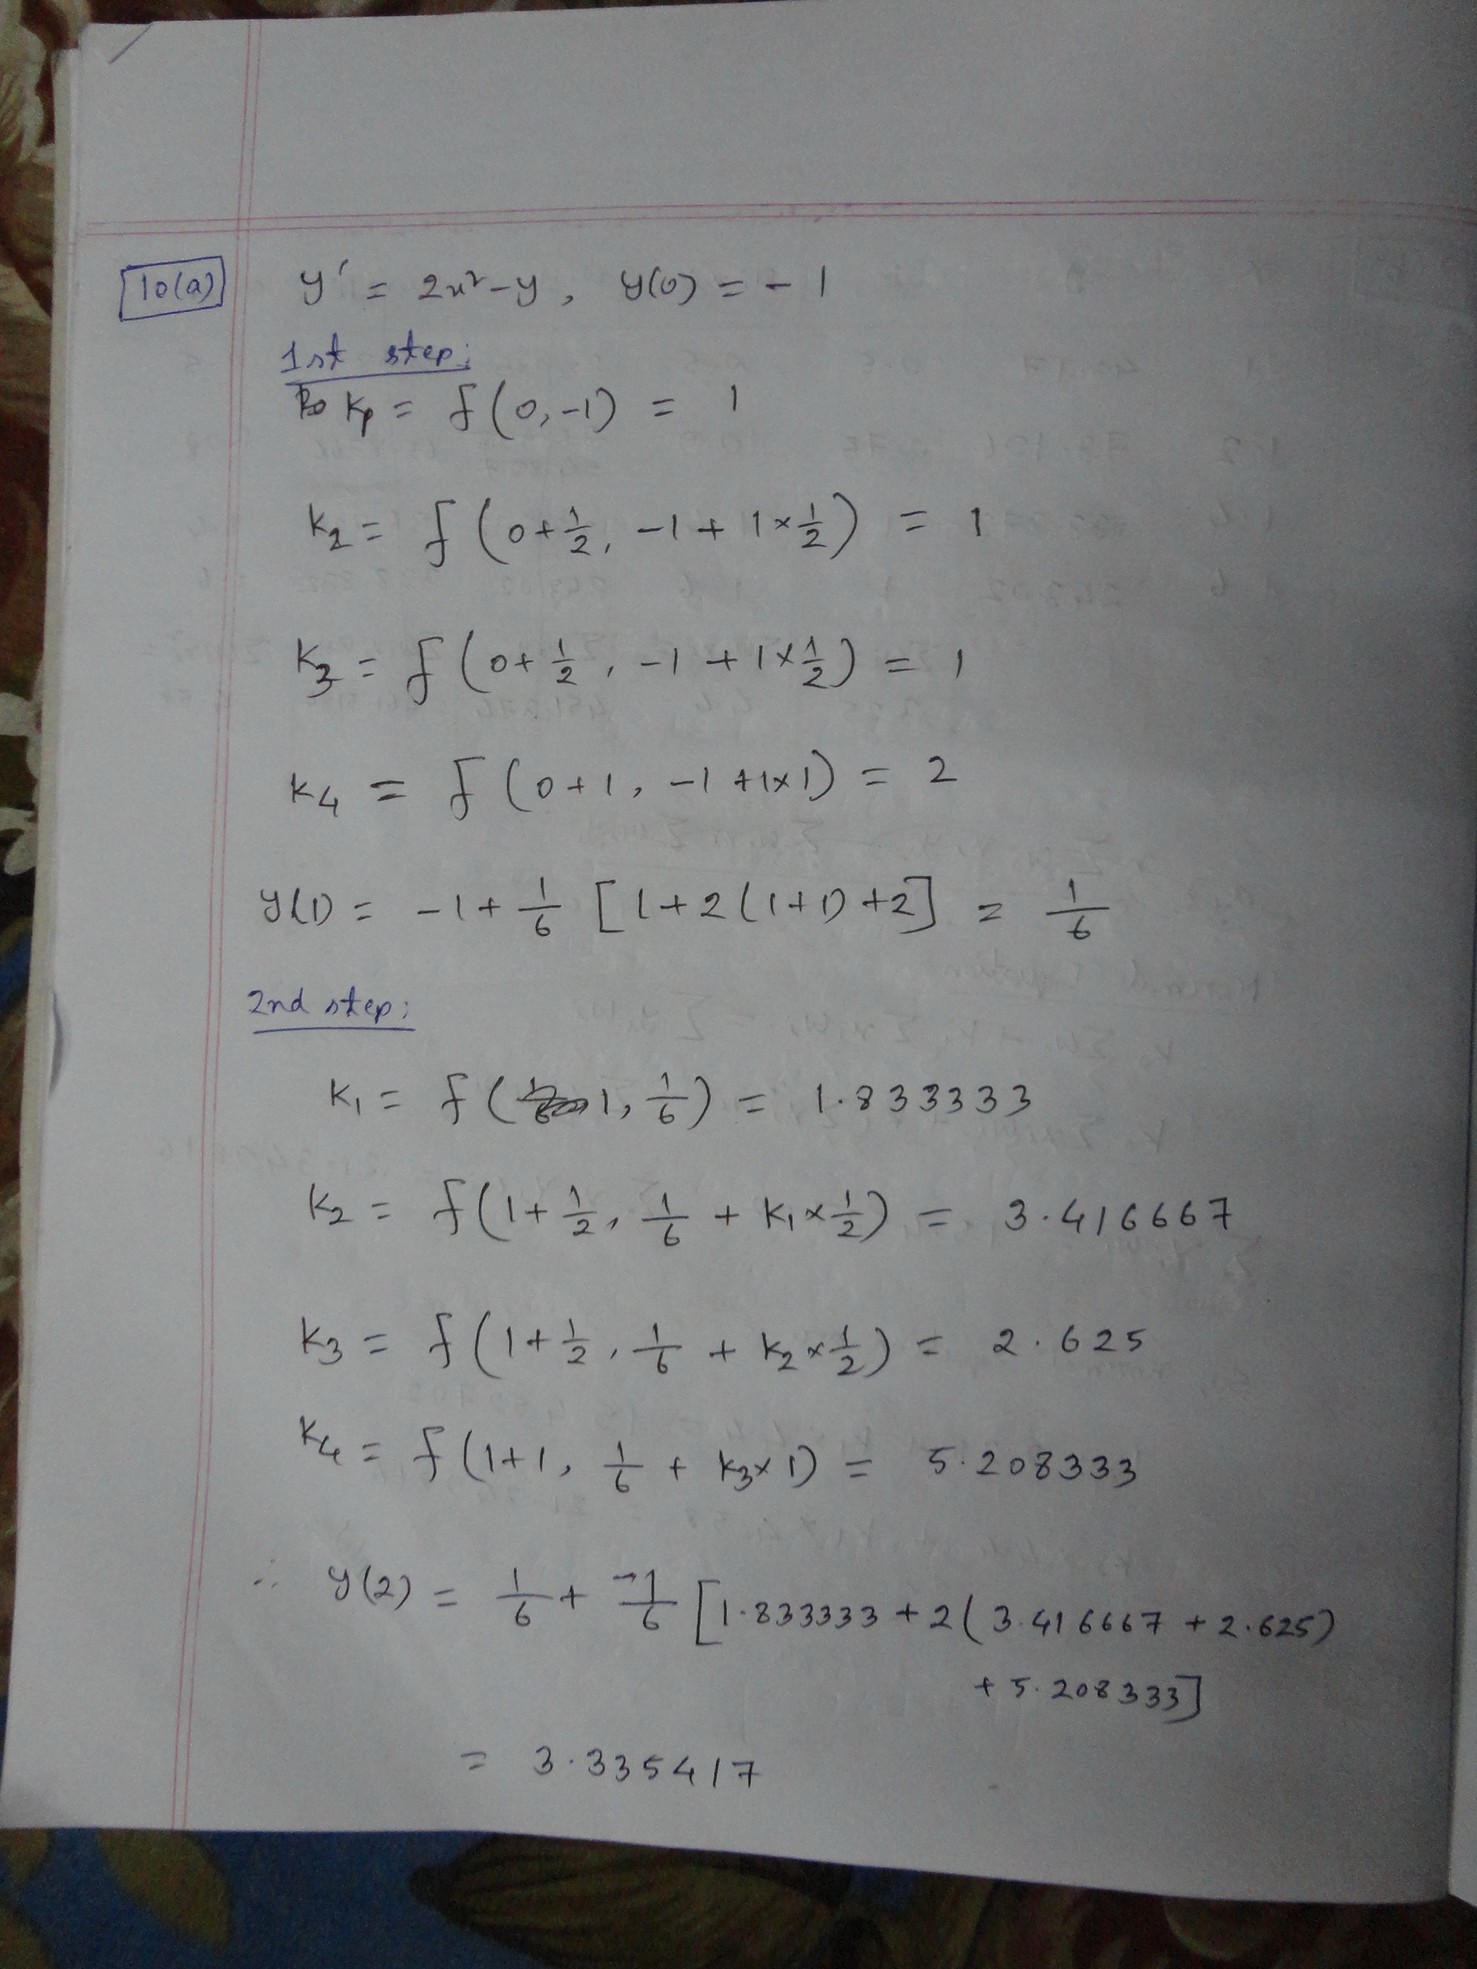 10(a)
y' = 2x² - y, y(0) = -1
1st step:
K₁ = f(0, -1) = 1
K₂ = f(0+1/2, -1+1×1/2) = 1
K₃ = f(0+1/2, -1+1×1/2) = 1
K₄ = f(0+1, -1+1×1) = 2
y(1) = -1 + 1/6 [1+2(1+1)+2] = 1/6
2nd step:
K₁ = f(1, 1/6) = 1.833333
K₂ = f(1+1/2, 1/6 + K₁×1/2) = 3.416667
K₃ = f(1+1/2, 1/6 + K₂×1/2) = 2.625
K₄ = f(1+1, 1/6 + K₃×1) = 5.208333
∴ y(2) = 1/6 + 1/6 [1.833333 + 2(3.416667 + 2.625)
+ 5.208333]
= 3.335417